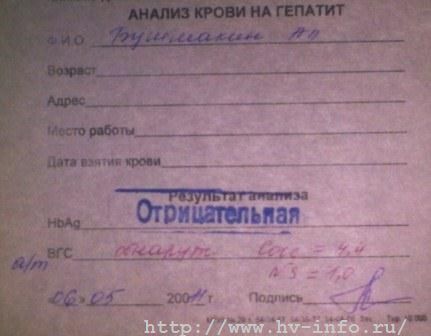 АНАЛИЗ КРОВИ НА ГЕПАТИТ
Ф.И.О.
Возраст
Адрес
Место работы
Дата взятия крови
Результат анализа
HbAg Отрицательная
а/т ВГС обнаруж = 4,4
N3 = 1,0
06 » 05 200 г Подпись
http://www.hv-info.ru/